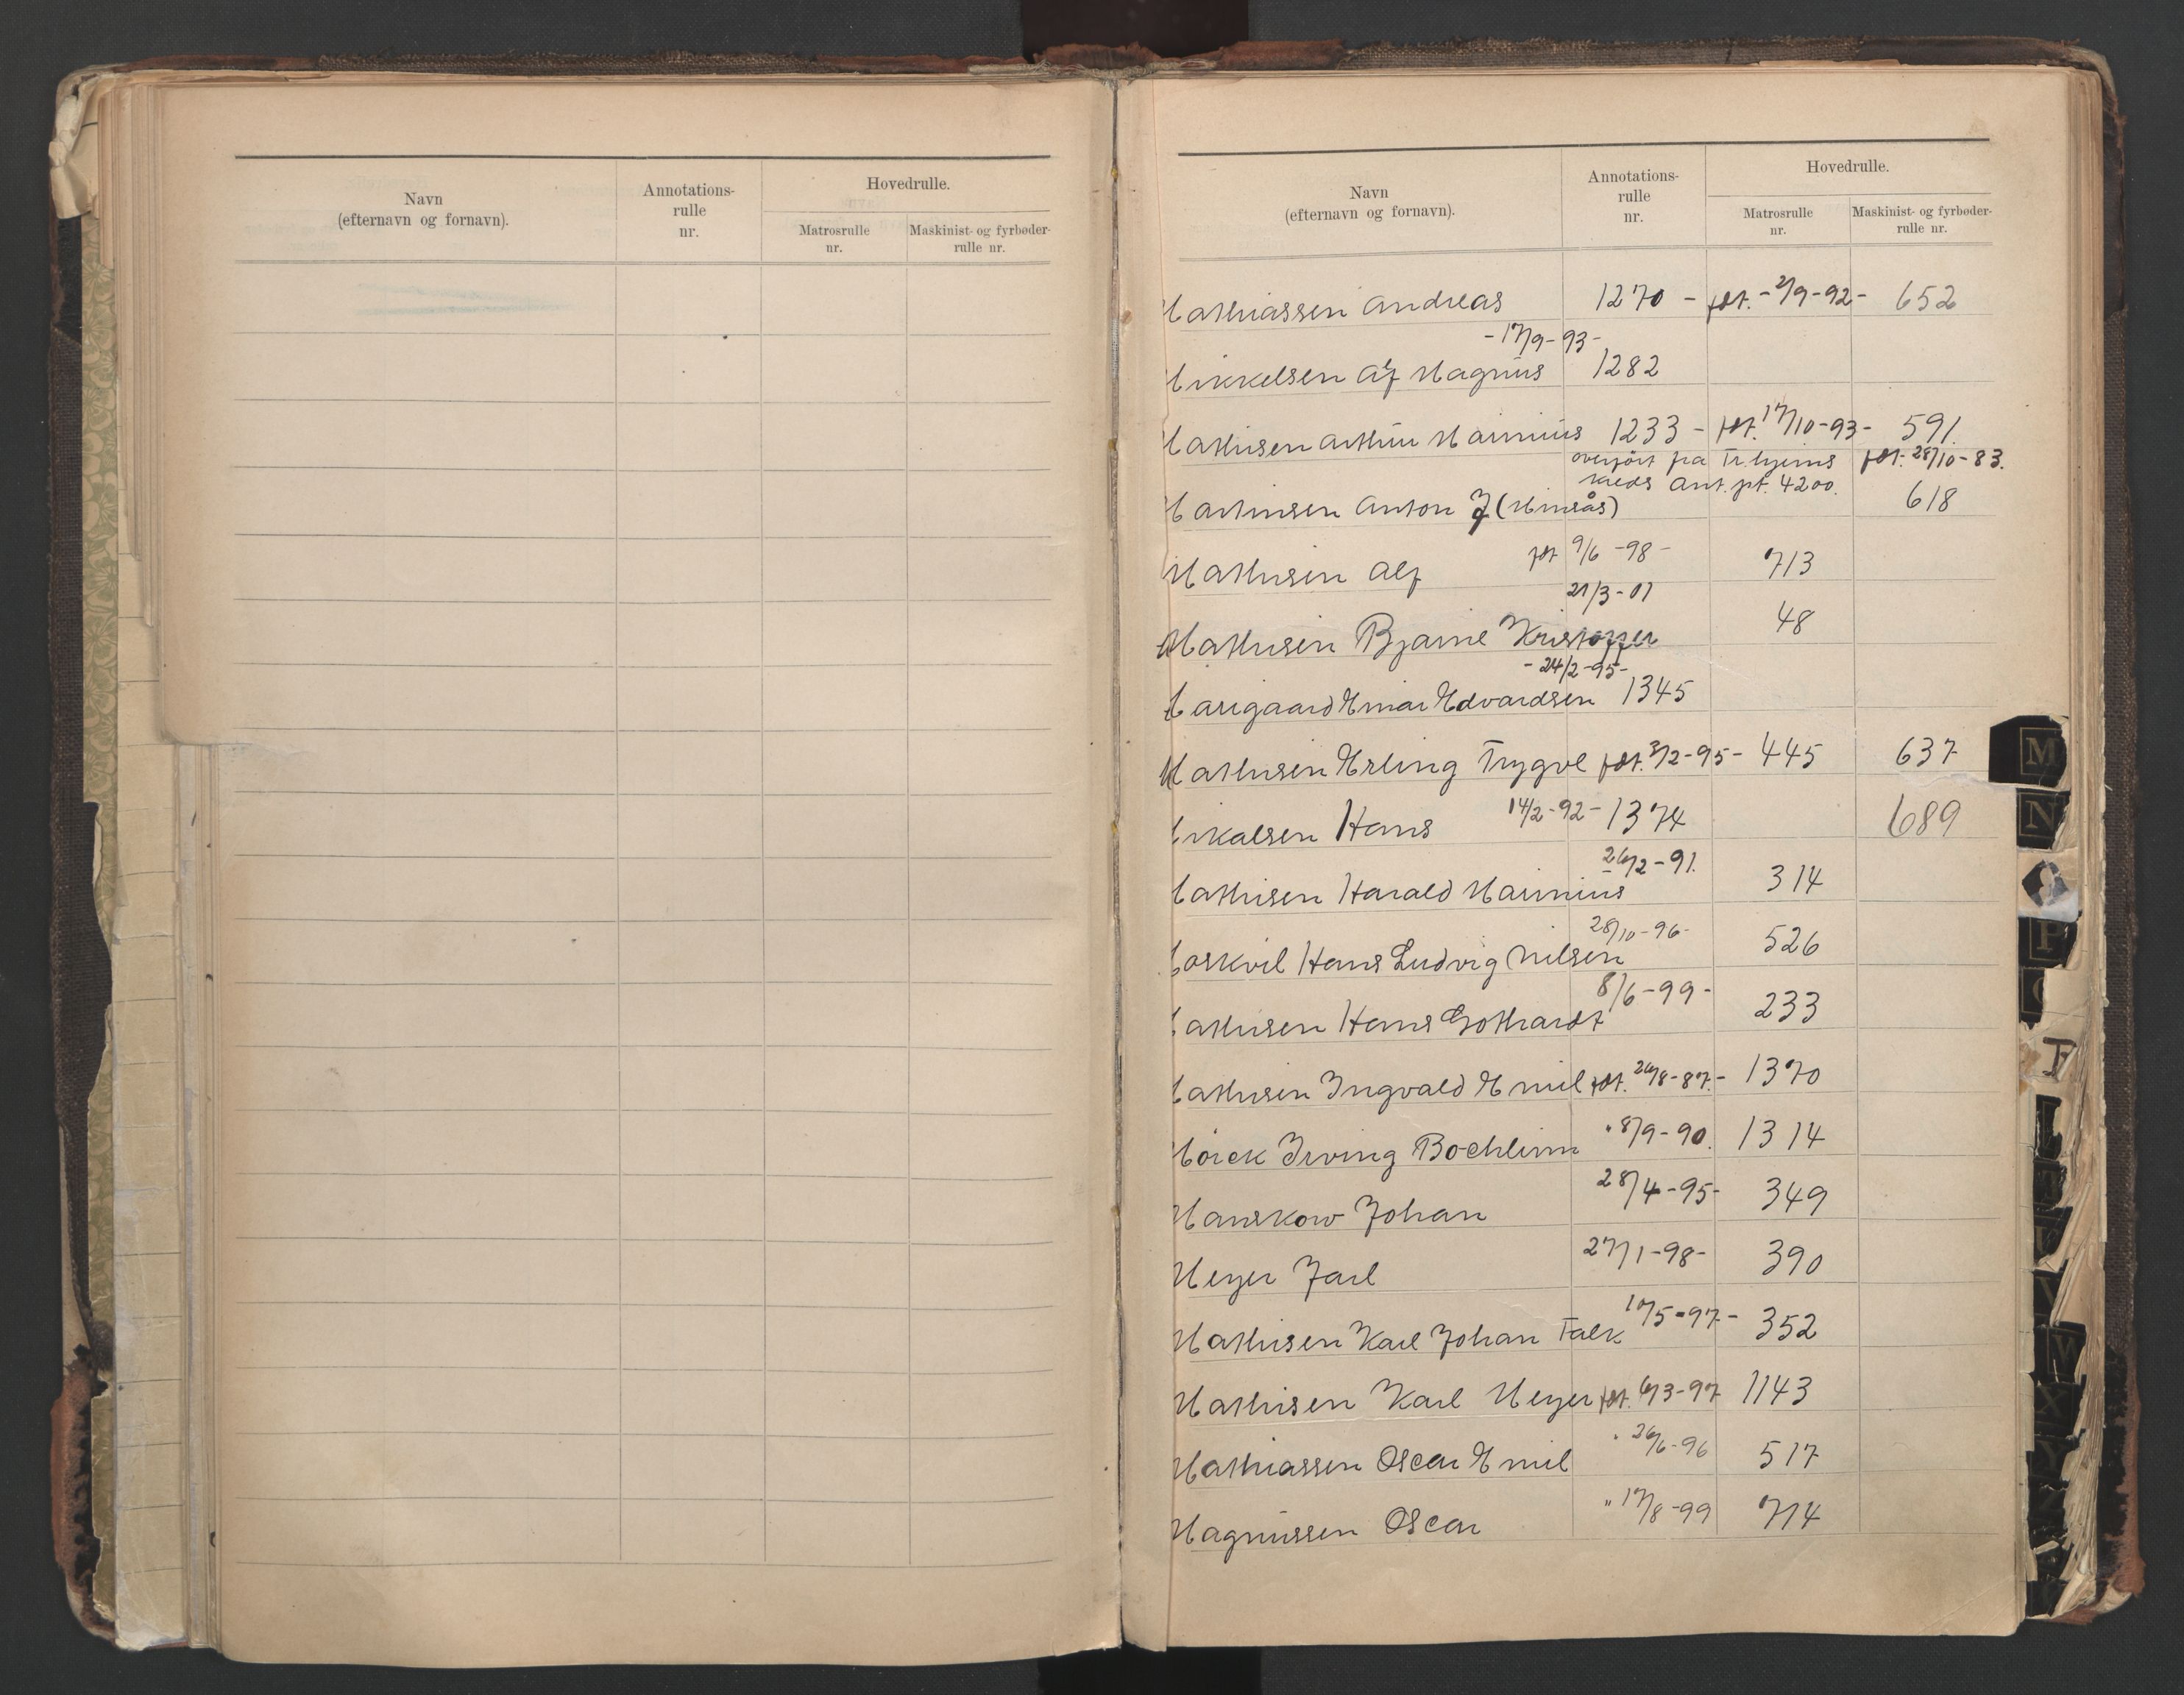 Navn
(efternavn og fornavn).
Annotations-
rulle
nr.
Hovedrulle.
Matrosrulle
nr.
Maskinist- og fyrbøder-
rulle nr.
Navn
(efternavn og fornavn).
Annotations-
rulle
nr.
Hovedrulle.
Matrosrulle
nr.
Maskinist- og fyrbøder-
rulle nr.
Mathiassen Andreas 1270 - fdt. - 2/9-92- 652
-17/9-93-
Mikkelsen Alf Magnus 1282
Mathisen Arthur Marinius 1233 - fdt. 17/10-93- 591.
overført fra Tr.hjems fdt. 28/10-83.
kreds Ant. pt. 4200.
Martinsen Anton J (Minsås) 618
Mathisen Alf fdt 9/6 -98- 713
21/3-01
Mathisen Bjarne Kristoffer 48
-24/2-95-
Marigaard Einar Edvardsen 1345
Mathisen Erling Trygve fdt. 3/2-95- 445 637
Mikalsen Hans 14/2-92- 1374 689
26/2-91.
Mathisen Harald Marinius 314
28/10-96-
Moskvil Hans Ludvig Nilsen 526
8/6-99-
Mathisen Hans Gothardt 233
Mathisen Ingvald Emil fdt. 26/8-87.- 1370
Mörck Irving Bochlim " 8/9-90. 1314
Manskow Johan 28/4-95- 349
Meyer Jarl 27/1-98- 390
Mathisen Karl Johan Falk 10/5-97- 352
Mathisen Karl Meyer fdt. 6/3-97 1143
Mathiassen Oscar Emil " 26/6-96 517
Magnussen Oscar " 17/8-99 714
M
N
P